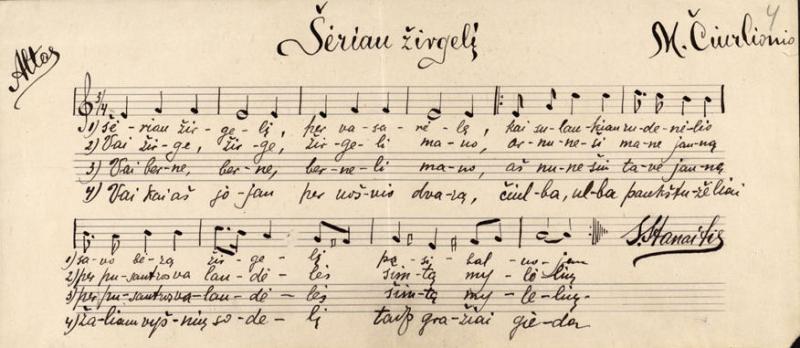 4
Altas
Šėriau žirgelį
M. Čiurlionio
3/4
1) šė-riau žir-ge-lį, per va-sa-rė-lę, kai su-lau-kiau ru-de-nė-lio
2) Vai žir-ge, žir-ge, žir-ge-li ma-no, ar nu-ne-ši ma-ne jau-ną
3) Vai ber-ne, ber-ne, ber-ne-li ma-no, aš nu-ne-šiu ta-ve jau-ną
4) Vai kai aš jo-jau per uoš-vio dva-rą, čiul-ba, ul-ba paukštu-žėliai
1) sa-vo bė-rą žir-ge-lį pa-si-bal-no-jau
2) per pu-santros va-lan-dė-lės šim-tą my-lė-lių
3) per pu-santros va-lan-dė-lės šim-tą my-lė-lių
4) ža-liam vyš-nių so-de-lį taip gra-žiai gie-da
S. Stanaitis